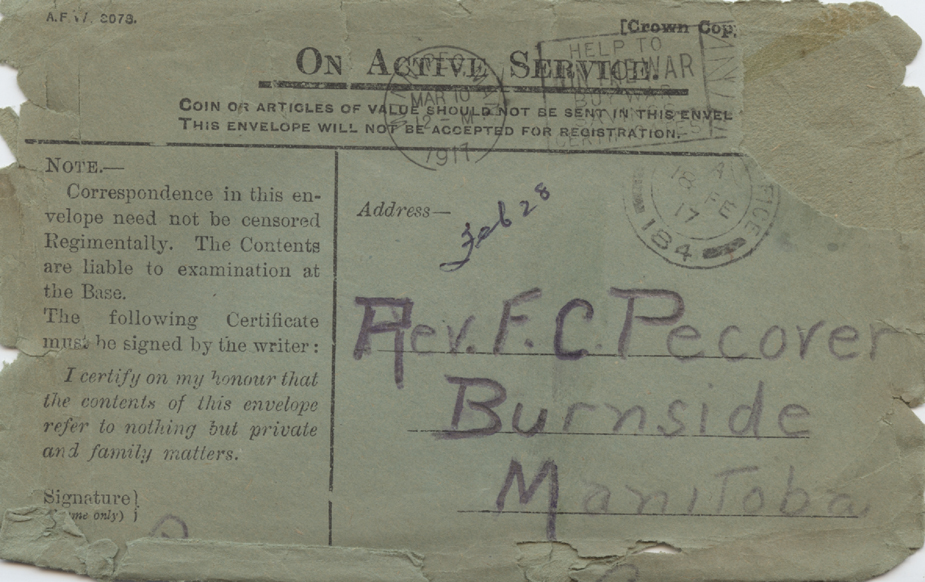 A.F.W. 3078.
[Crown Cop
ON ACTIVE SERVICE.
COIN OR ARTICLES OF VALUE SHOULD NOT BE SENT IN THIS ENVEL
THIS ENVELOPE WILL NOT BE ACCEPTED FOR REGISTRATION.—
MAR 10
12 - M
1917
HELP TO
WAR
BUY WAR
CERTIFICATES
NOTE.—
Correspondence in this en-
velope need not be censored
Regimentally. The Contents
are liable to examination at
the Base.
The following Certificate
must be signed by the writer:
I certify on my honour that
the contents of this envelope
refer to nothing but private
and family matters.
Signature}
me only) }
Address—
Feb 28
A
18 FE
17
184
Rev. F. C. Pecover
Burnside
Manitoba